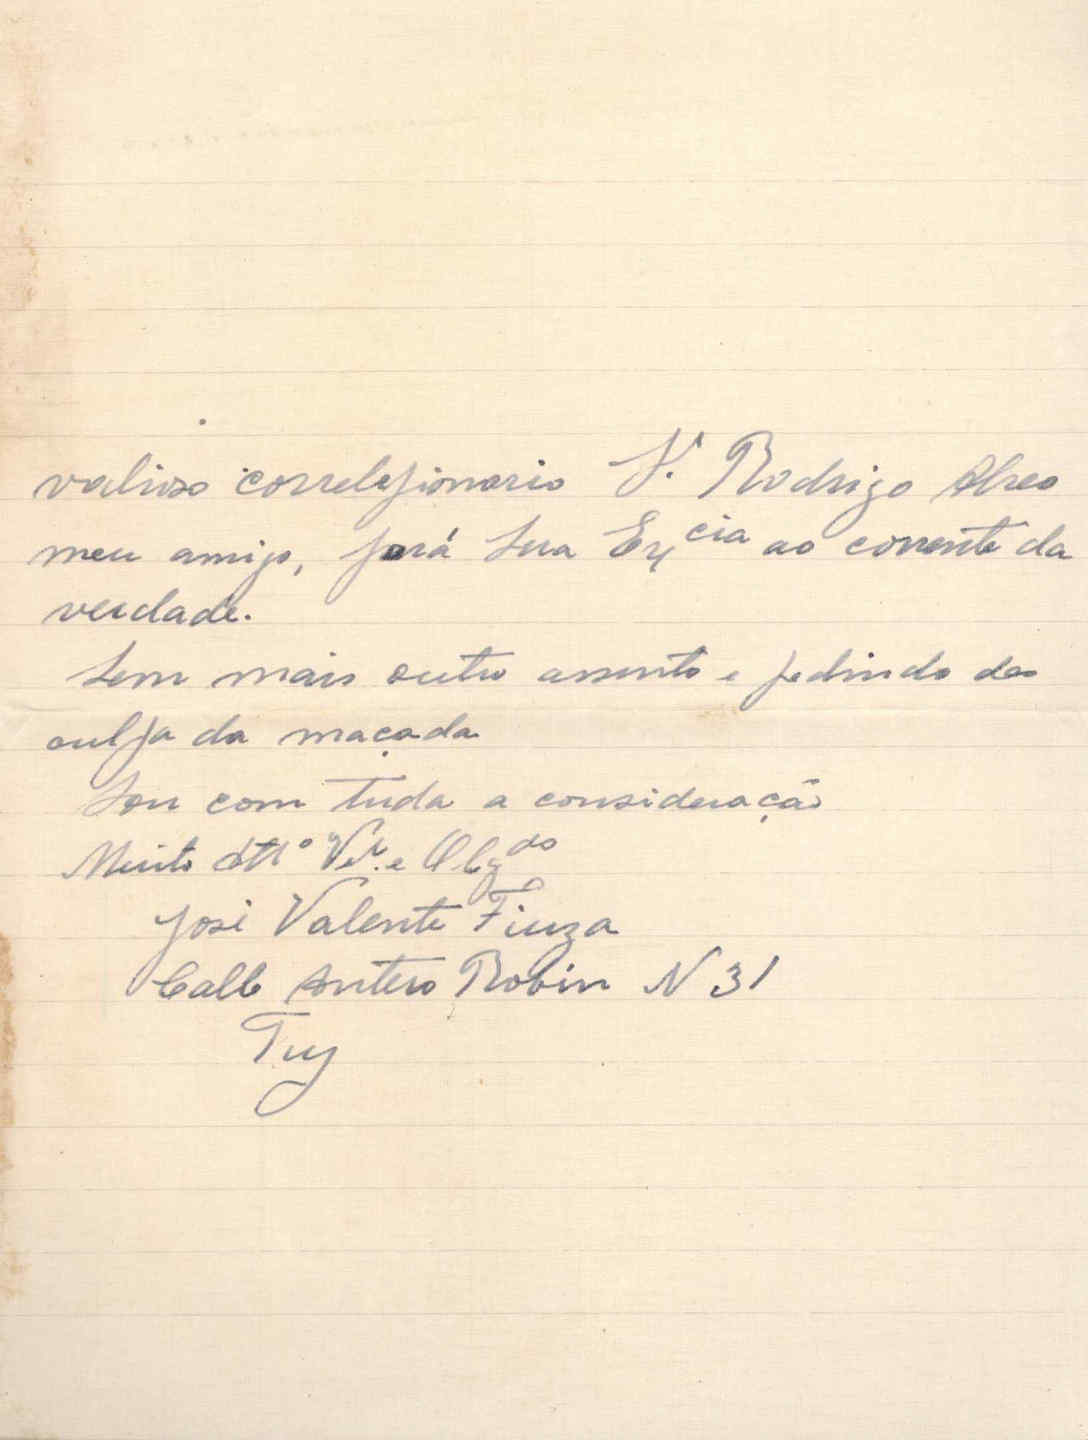 valioso correlejionario S.r Rodrigo Alves
meu amigo, porá Sua Excia ao corrente da
verdade.
Sem mais outro assunto e pedindo des
culpa da maçada
Sou com tuda a consideração
Muito Attº Ver. e Obgdo
José Valente Fiuza
Calle Antero Robin N 31
Tuy